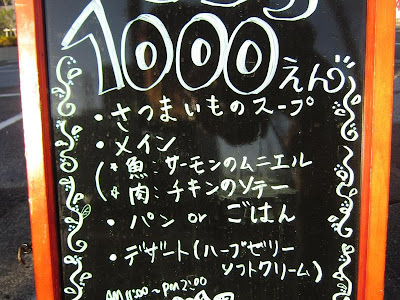 1000えん
・さつまいものスープ
・メイン
(*魚:サーモンのムニエル
*肉:チキンのソテー
・パン or ごはん
・デザート(ハーブゼリー
ソフトクリーム)
AM11:00〜PM2:00